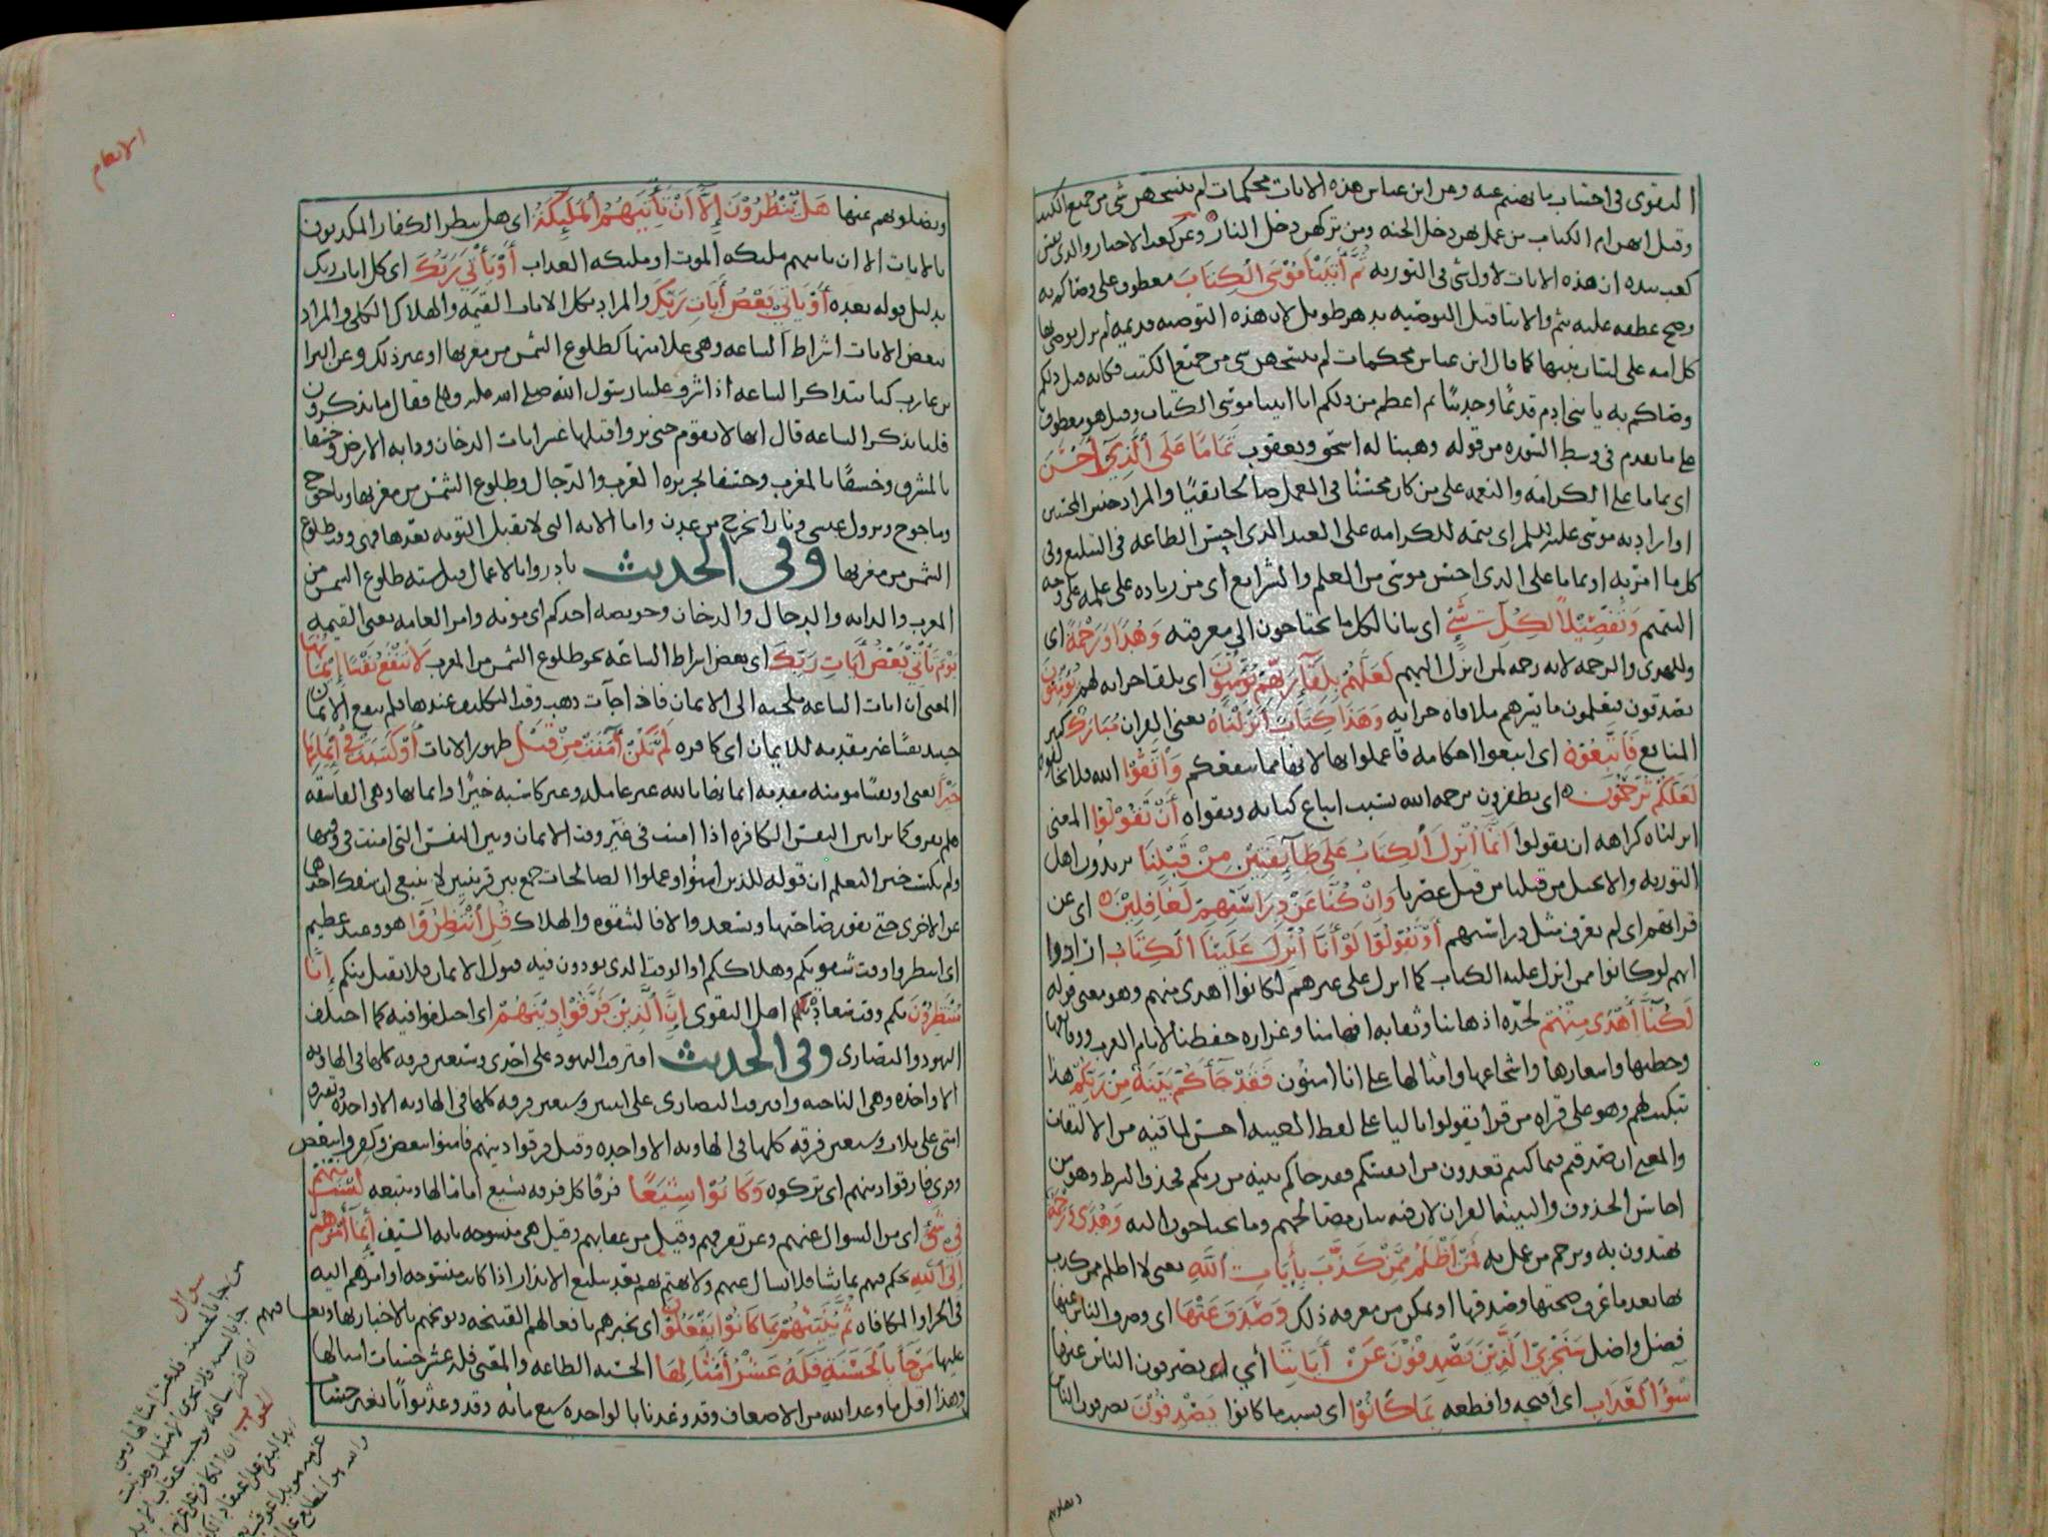 التقوى فى اجتناب ما نهيتم عنه وعن ابن عباس هذه الايات محكمات لم ينسخهن شى من جميع الكتب
وقيل انهن ام الكتاب من عمل بهن دخل الجنه ومن تركهن دخل النار وعن كعب الاحبار والذى نفس
كعب بيده ان هذه الايات لاول شى فى التوريه ثُمَّ أَتَيْنَا مُوْسَى الْكِتَابَ معطوف على وصاكم به
وصح عطفه عليه بثم والايتا قبل التوصيه بدهر طويل لان هذه التوصيه قديمه لم يزل يوصى بها
كل امه على لسان نبيها كما قال ابن عباس محكمات لم ينسخهن شى من جميع الكتب فكانه قيل ذلكم
وصاكم به يا بنى ادم قديمًا وحديثًا ثم اعظم من ذلكم انا اتينا موسى الكتاب وقيل هو معطوف
على ما تقدم فى وسط السوره من قوله وهبنا له اسحق ويعقوب تَمَامًا عَلَى الَّذِيْ أَحْسَنَ
اى تماما على الكرامه والنعمه على من كان محسنًا فى العمل صالحا تقيًا والمراد جنس المحسنين
او اراد به موسى عليه السلم اى تتمه للكرامه على العبد الذى احسن الطاعه فى التبليغ وفى
كل ما امر به او تماما على الذى احسن موسى من العلم والشرائع اى من زياده على علمه على وجه
التتميم وَتَفْصِيْلًا لِكُلِّ شَيْءٍ اى بيانا لكل ما يحتاجون الى معرفته وَهُدًا وَرَحْمَةً اى
وللهدى والرحمه لانه رحمه لمن انزل اليهم لَعَلَّهُمْ بِلِقَآءِ رَبِّهِمْ يُؤْمِنُوْنَ اى بلقا جزائه لهم يُؤْمِنُوْنَ
يصدقون فيعلمون ما يتيرهم ملاقاه جزائه وَهَذَا كِتَابٌ أَنْزَلْنَاهُ يعنى القران مُبَارَكٌ كثير
المنافع فَاتَّبِعُوْهُ اى اتبعوا احكامه فاعملوا بها لانها مما ينفعكم وَاتَّقُوْا الله فلا تخالفوه
لَعَلَّكُمْ تُرْحَمُوْنَ اى تظفرون برحمه الله بسبب اتباع كتابه وتقواه أَنْ تَقُوْلُوْا المعنى
انزلناه كراهه ان تقولوا إِنَّمَا أُنْزِلَ الْكِتَابُ عَلَى طَآئِفَتَيْنِ مِنْ قَبْلِنَا يريدون اهل
التوريه والانجيل من قبلنا من قبل عصرنا وَإِنْ كُنَّا عَنْ دِرَاسَتِهِمْ لَغَافِلِيْنَ اى عن
قرائتهم اى لم نعرف مثل دراستهم أَوْ تَقُوْلُوْا لَوْ أَنَّا أُنْزِلَ عَلَيْنَا الْكِتَابُ ارادوا
انهم لو كانوا ممن انزل عليه الكتاب كما انزل على غيرهم لكانوا اهدى منهم وهو معنى قوله
لَكُنَّا أَهْدَى مِنْهُمْ لحده اذهاننا وثقابه افهامنا وغزاره حفظنا لايام العرب ووقايعها
وخطبها واشعارها واسجاعها وامثالها على انا اميون فَقَدْ جَآءَكُمْ بَيِّنَةٌ مِنْ رَبِّكُمْ هذا
تبكيت لهم وهو على قراه من قرا يقولوا باليا على لفظ الغيبه احسن لما فيه من الالتفات
والمعنى ان صدقتم فيما كنتم تعدون من انفسكم فقد جاكم بينه من ربكم فحذف الشرط وهو من
احاسن الحذوف والبينه القران لان فيه بيان مصالحهم وما يحتاجون اليه وَهُدًى وَرَحْمَةٌ
يهتدون به ويرحم من عمل به فَمَنْ أَظْلَمُ مِمَّنْ كَذَّبَ بِأَيَاتِ اللَّهِ يعنى لا اظلم ممن كذب
بها بعد ما عرف صحتها وصدقها او تمكن من معرفه ذلك وَصَدَفَ عَنْهَا اى وصرف الناس عنها
فضل واضل سَنَجْزِيْ الَّذِيْنَ يَصْدِفُوْنَ عَنْ أَيَاتِنَا أي يصرفون الناس عنها
سُوْءَ الْعَذَابِ اى اقبحه وافظعه بِمَا كَانُوْا اى بسبب ما كانوا يَصْدِفُوْنَ يصرفون الناس
الانعام
ويضلونهم عنها هَلْ يَنْظُرُوْنَ إِلَّا أَنْ تَأْتِيَهُمُ الْمَلَئِكَةُ اى هل ينظر الكفار المكذبون
بالايات الا ان ياتيهم مليكه الموت او مليكه العذاب أَوْ يَأْتِيَ رَبُّكَ اى كل ايات ربك
بدليل قوله بعده أَوْ يَأْتِيَ بَعْضُ أَيَاتِ رَبِّكَ والمراد بكل الايات القيمه والهلاك الكلى والمراد
ببعض الايات اشراط الساعه وهى علاماتها كطلوع الشمس من مغربها او غير ذلك وعن البرا
بن عازب كنا نتذاكر الساعه اذ اشرف علينا رسول الله صلى الله عليه وسلم فقال ما تذكرون
قلنا نذكر الساعه قال انها لا تقوم حتى تروا قبلها عشر ايات الدخان ودابه الارض وخسفا
بالمشرق وخسفًا بالمغرب وخسفا بجزيره العرب والدجال وطلوع الشمس من مغربها وياجوج
وماجوج ونزول عيسى ونارا تخرج من عدن واما الايه التى لا تقبل التوبه بعدها فهى وقت طلوع
الشمس من مغربها وفى الحديث بادروا بالاعمال قبل سته طلوع الشمس من
المغرب والدابه والدجال والدخان وخويصه احدكم اى موته وامر العامه يعنى القيمه
يَوْمَ يَأْتِيْ بَعْضُ أَيَاتِ رَبِّكَ اى بعض اشراط الساعه نحو طلوع الشمس من المغرب لَا يَنْفَعُ نَفْسًا إِيْمَانُهَا
المعنى ان ايات الساعه ملجيه الى الايمان فاذا جآت ذهب وقت التكليف عندها فلم ينفع الايمان
حينئذ نفسًا غير مقدمه للايمان اى كافره لَمْ تَكُنْ آمَنَتْ مِنْ قَبْلُ ظهور الايات أَوْ كَسَبَتْ فِيْ إِيْمَانِهَا
خَيْرًا يعنى او نفسًا مومنه مقدمه ايمانها بالله غير عامله وغير كاسبه خيرًا وايمانها وهى الفاسقه
فلم يفرق كما ترى بين النفس الكافره اذا امنت فى غير وقت الايمان وبين النفس التى امنت فى وقتها
ولم تكسب خيرا لتعلم ان قوله للذين امنوا وعملوا الصالحات جمع بين قرينتين لا ينبغى ان تنفك احداهما
عن الاخرى حتى يفوز صاحبها ويسعد والا فالشقوه والهلاك قُلِ انْتَظِرُوْا هو وعيد عظيم
اى انتظروا وقت شقوتكم وهلاككم او الوقت الذى تودون فيه قبول الايمان فلا تقبل منكم إِنَّا
مُنْتَظِرُوْنَ بكم وقت شقاوتكم اهل التقوى إِنَّ الَّذِيْنَ فَرَّقُوْا دِيْنَهُمْ اى اختلفوا فيه كما اختلف
اليهود والنصارى وفى الحديث افترقت اليهود على احدى وسبعين فرقه كلها فى الهاويه
الا واحده وهى الناجيه وافترقت النصارى على اثنين وسبعين فرقه كلها فى الهاويه الا واحده وتفترق
امتى على ثلاث وسبعين فرقه كلها فى الهاويه الا واحده وقيل فرقوا دينهم فامنوا ببعض وكفروا ببعض
وقرى فارقوا دينهم اى تركوه وَكَانُوْا شِيَعًا فرقًا كل فرقه تشيع اماما لها وتتبعه لَسْتَ مِنْهُمْ
فِيْ شَيْءٍ اى من السوال عنهم وعن تفرقهم وقيل من عقابهم وقيل هى منسوخه بايه السيف إِنَّمَا أَمْرُهُمْ
إِلَى اللَّهِ يحكم فيهم بما شا فلا تسال عنهم ولا تهتم بهم بعد تبليغ الانذار اذا كانت منسوخه او امرهم اليه
فى الجزا والمكافاه ثُمَّ يُنَبِّئُهُمْ بِمَا كَانُوْا يَفْعَلُوْنَ اى يخبرهم بافعالهم القبيحه ويوبخهم بالاخبار بها ويعاقبهم
عليها مَنْ جَآءَ بِالْحَسَنَةِ فَلَهُ عَشْرُ أَمْثَالِهَا الحسنه الطاعه والمعنى فله عشر حسنات امثالها
وهذا اقل ما وعد الله من الاضعاف وقد وعدنا بالواحده سبع مائه وقد وعد ثوابًا بغير حساب
سوال
من جا بالحسنه فله عشر امثالها ومن
جا بالسيه فلا يجزى الا مثلها
الجواب